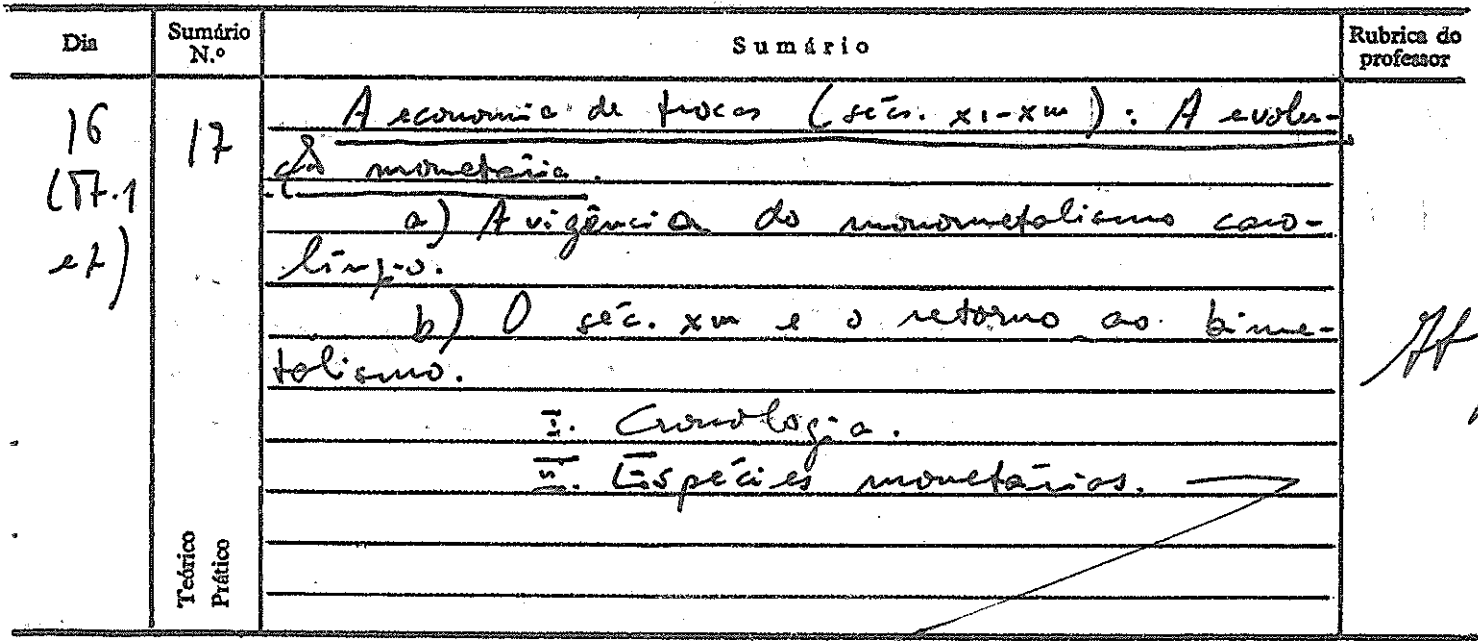 Dia
Sumário N.º
Sumário
Rubrica do professor
16
17
A economia de trocas (sécs. XI-XIII): A evolu-
ção monetária.
a) A vigência do monometalismo caro-
língio.
b) O séc. XIII e o retorno ao bime-
talismo.
I. Cronologia.
II. Espécies monetárias.
Teórico
Prático